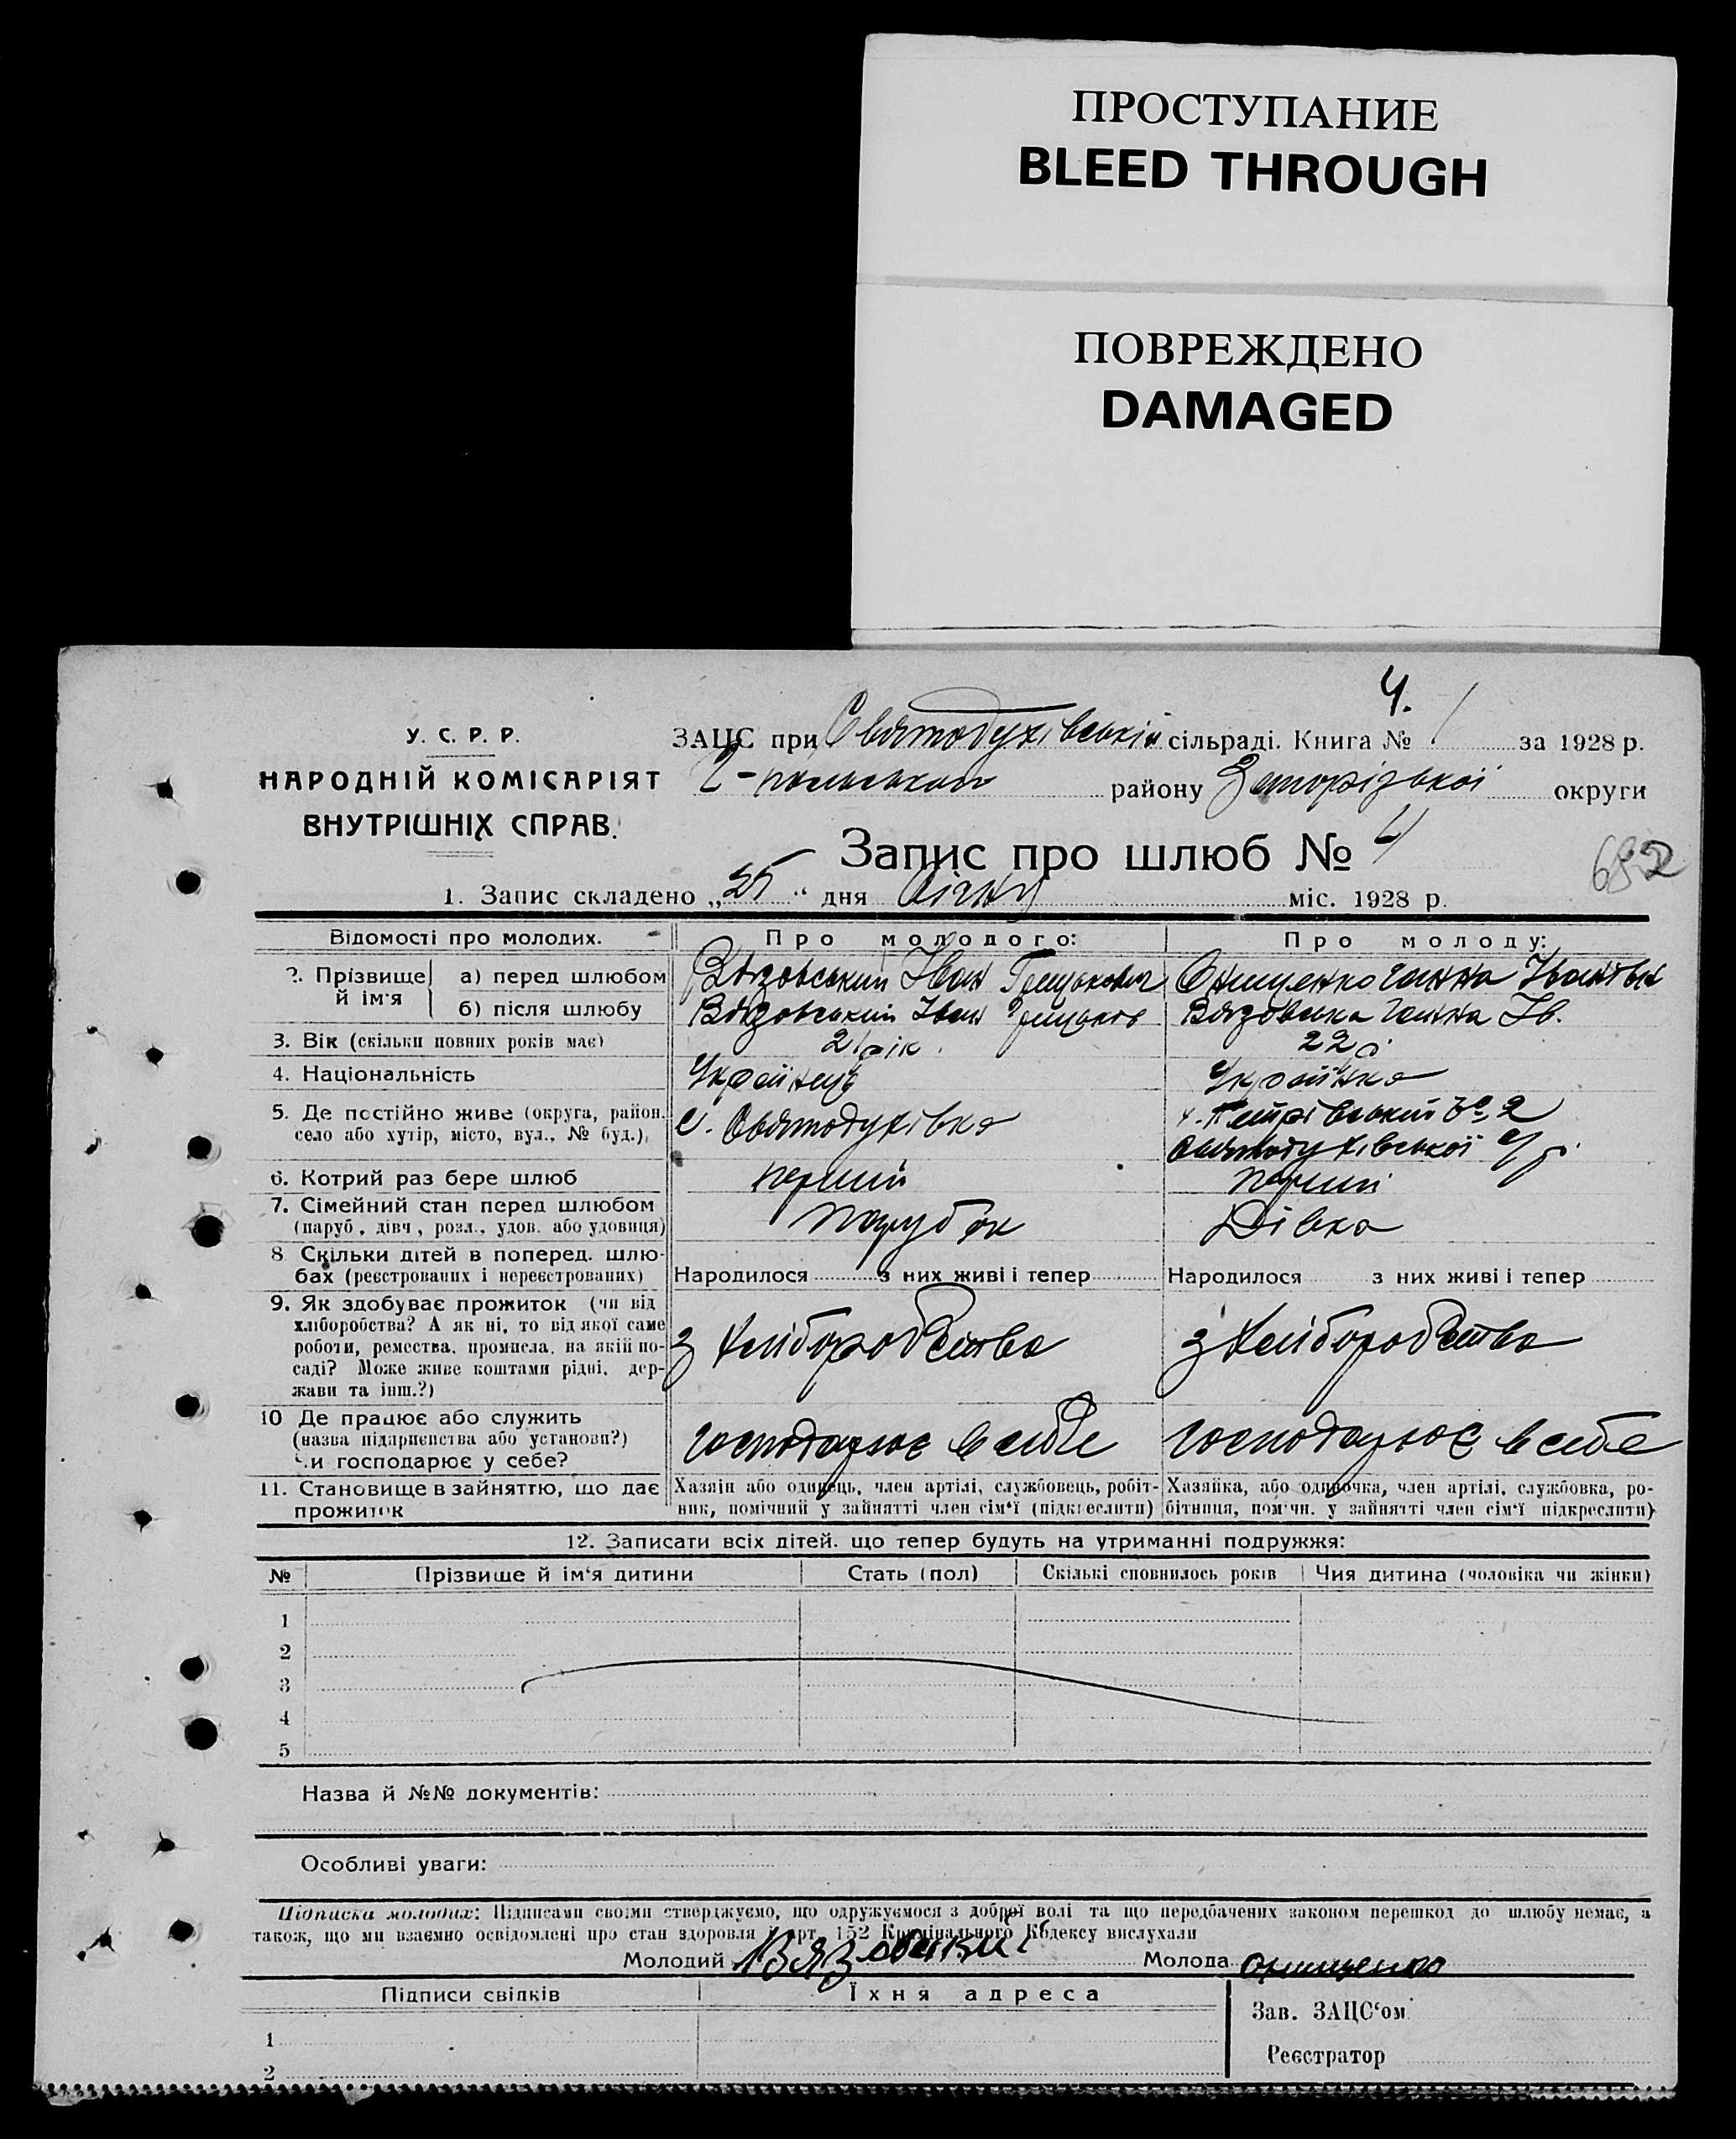 ПРОСТУПАНИЕ
BLEED THROUGH
ПОВРЕЖДЕНО
DAMAGED
4.
У. С. Р. Р.
НАРОДНІЙ КОМІСАРІЯТ
ВНУТРІШНІХ СПРАВ.
ЗАЦС при Святодухівській сільраді. Книга № 1 за 1928 р.
району Запорізької округи
Запис про шлюб № 4
682
1. Запис складено „25“ дня Січня міс. 1928 р.
Відомості про молодих. Про молодого: Про молоду:
2. Прізвище й ім'я а) перед шлюбом Вязовський Іван Грицькович Онищенко Ганна Іванівн
б) після шлюбу Вязовський Іван Грицьков Вязовська Ганна Ів.
3. Вік (скільки повних років має) 21 рік. 22 р.
4. Національність Українець Українка
5. Де постійно живе (округа, район, с. Святодухівка х. Петрівський № 2
село або хутір, місто, вул., № буд.), Святодухівської с/р.
6. Котрий раз бере шлюб перший перший
7. Сімейний стан перед шлюбом парубок Дівка
(паруб, дівч, розл., удов. або удовиця)
8 Скільки дітей в поперед. шлю-
бах (реєстрованих і нереєстрованих) Народилося з них живі і тепер Народилося з них живі і тепер
9. Як здобуває прожиток (чи від
хліборобства? А як ні, то від якої саме
роботи, ремества, промисла, на якій по- з хліборобства з хліборобства
саді? Може живе коштами рідні, дер-
жави та інш.?)
10 Де працює або служить
(назва підприємства або установи?) господарює в себе господарює в себе
и господарює у себе?
11. Становище в зайняттю, що дає Хазяїн або одинець, член артілі, службовець, робіт- Хазяйка, або одиночка, член артілі, службовка, ро-
прожиток ник, помічний у зайнятті член сім'ї (підкреслити) бітниця, пом'чн. у зайнятті член сім'ї підкреслити)
12. Записати всіх дітей. що тепер будуть на утриманні подружжя:
№ Прізвище й ім'я дитини Стать (пол) Скількі сповнилось років Чия дитина (чоловіка чи жінки)
1
2
3
4
5
Назва й №№ документів:
Особливі уваги:
Підписка молодих: Підписами своїми стверджуємо, що одружуємося з доброї волі та що передбачених законом перешкод до шлюбу немає, а
також, що ми взаємно освідомлені про стан здоровля й арт. 152 Кримінального Кодексу вислухали
Молодий Вязовский Молода Онищенко
Підписи свідків Їхня адреса
Зав. ЗАЦС'ом
1
Реєстратор
2